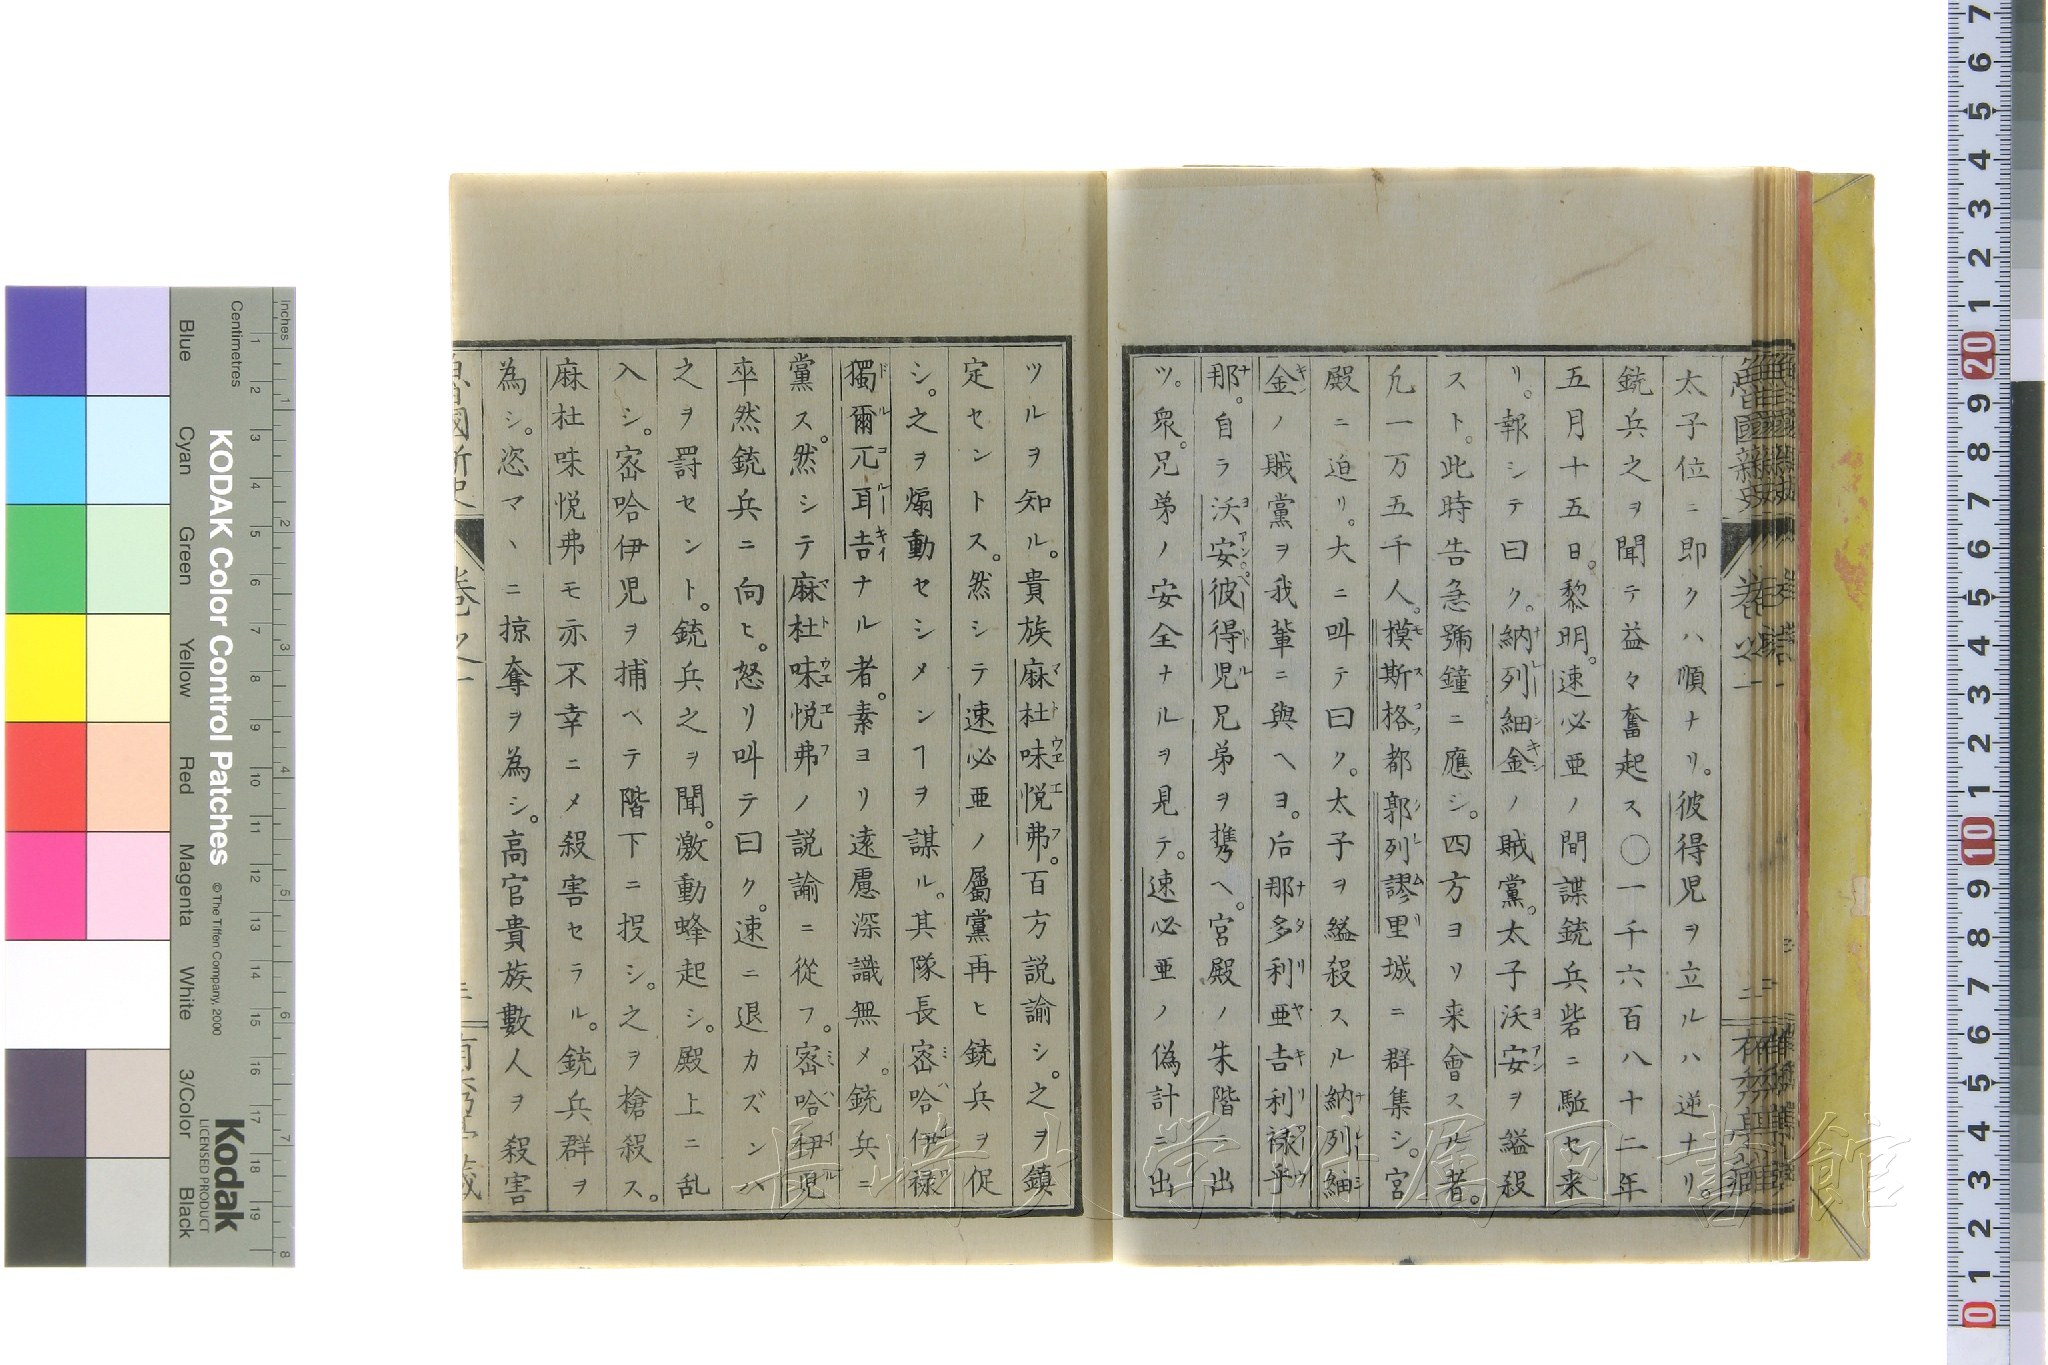 太子位ニ即クハ順ナリ。彼得児ヲ立ルハ逆ナリ。
銃兵之ヲ聞テ益々奮起ス〇一千六百八十二年
五月十五日。黎明。速必亜ノ間諜銃兵砦ニ駈セ来
リ。報シテ曰ク。納列細金ノ賊黨。太子沃安ヲ謚殺
スト。此時告急號鐘ニ應シ。四方ヨリ来會スル者。
凢一万五千人。摸斯格都郭列謬里城ニ群集シ。宮
殿ニ迫リ。大ニ叫テ曰ク。太子ヲ縊殺スル納列細
金ノ賊黨ヲ我輩ニ與ヘヨ。后那多利亜吉利祿乎
那。自ラ沃安。彼得児兄弟ヲ携ヘ。宮殿ノ朱階ニ出
ツ。衆。兄弟ノ安全ナルヲ見テ。速必亜ノ偽計ニ出
ツルヲ知ル。貴族麻杜味悦弗。百方説諭シ。之ヲ鎮
定セントス。然シテ速必亜ノ屬黨再ヒ銃兵ヲ促
シ。之ヲ煽動セシメンヿヲ謀ル。其隊長宻哈伊祿
獨爾兀耳吉ナル者。素ヨリ遠慮深識無メ。銃兵ニ
黨ス。然シテ麻杜味悦弗ノ説諭ニ從フ。宻哈伊児
卒然銃兵ニ向ヒ。怒リ叫テ曰ク。速ニ退カズンハ
之ヲ罸セント。銃兵之ヲ聞。激動蜂起シ。殿上ニ乱
入シ。宻哈伊児ヲ捕ヘテ階下ニ投シ。之ヲ槍殺ス。
麻杜味悦弗モ亦不幸ニメ殺害セラル。銃兵群ヲ
為シ。恣マヽニ掠奪ヲ為シ。高官貴族數人ヲ殺害
長崎大学附属図書館
KODAK Color Control Patches
© The Tiffen Company, 2000
Kodak
LICENSED PRODUCT
Inches
Centimetres
Blue
Cyan
Green
Yellow
Red
Magenta
White
3/Color
Black